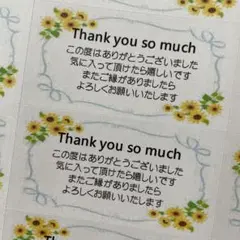 Thank you so much
この度はありがとうございました
気に入って頂けたら嬉しいです
またご縁がありましたら
よろしくお願いいたします
Thank you so much
この度はありがとうございました
気に入って頂けたら嬉しいです
またご縁がありましたら
よろしくお願いいたします